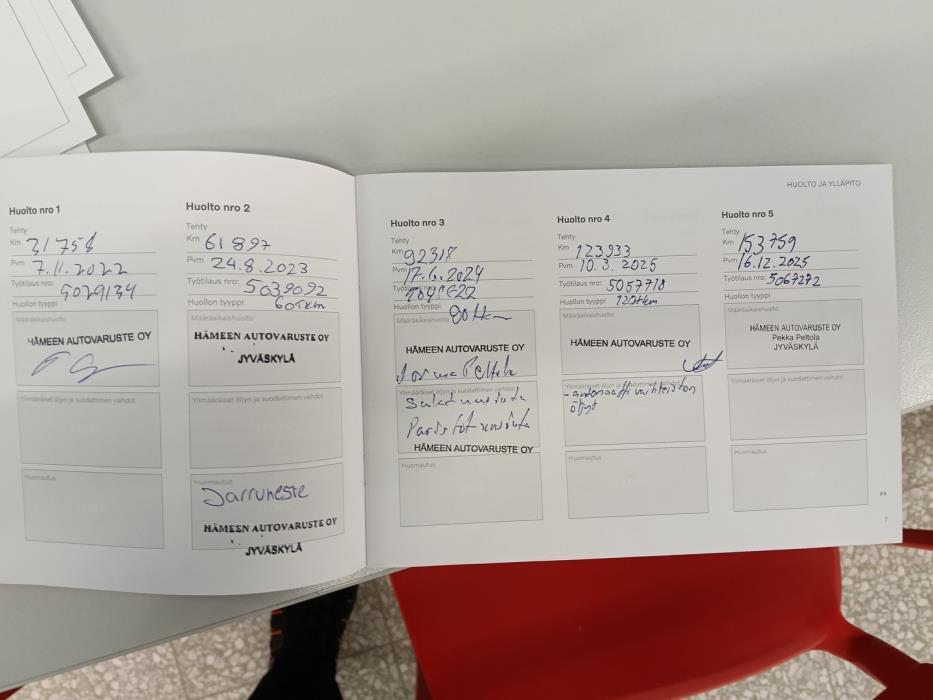 HUOLTO JA YLLÄPITO
Huolto nro 1
Tehty
Km 31758
Pvm 7.11.2022
Työtilaus nro: 5029134
Huollon tyyppi
Määräaikaishuolto
HÄMEEN AUTOVARUSTE OY
Ylimääräiset öljyn ja suodattimen vaihdot
Huomautus
Huolto nro 2
Tehty
Km 61897
Pvm 24.8.2023
Työtilaus nro: 5039092
Huollon tyyppi 60tkm
Määräaikaishuolto
HÄMEEN AUTOVARUSTE OY
JYVÄSKYLÄ
Ylimääräiset öljyn ja suodattimen vaihdot
Huomautus
Jarruneste
HÄMEEN AUTOVARUSTE OY
JYVÄSKYLÄ
Huolto nro 3
Tehty
Km 92318
Pvm 17.6.2024
Työtilaus nro:
Huollon tyyppi 90tkm
Määräaikaishuolto
HÄMEEN AUTOVARUSTE OY
Ylimääräiset öljyn ja suodattimen vaihdot
HÄMEEN AUTOVARUSTE OY
Huomautus
Huolto nro 4
Tehty
Km 123933
Pvm 10.3.2025
Työtilaus nro: 5057718
Huollon tyyppi 120tkm
Määräaikaishuolto
HÄMEEN AUTOVARUSTE OY
Ylimääräiset öljyn ja suodattimen vaihdot
- automaatti vaihteiston
öljyt
Huomautus
Huolto nro 5
Tehty
Km 153759
Pvm 16.12.2025
Työtilaus nro: 5067272
Huollon tyyppi
Määräaikaishuolto
HÄMEEN AUTOVARUSTE OY
Pekka Peltola
JYVÄSKYLÄ
Ylimääräiset öljyn ja suodattimen vaihdot
Huomautus
7